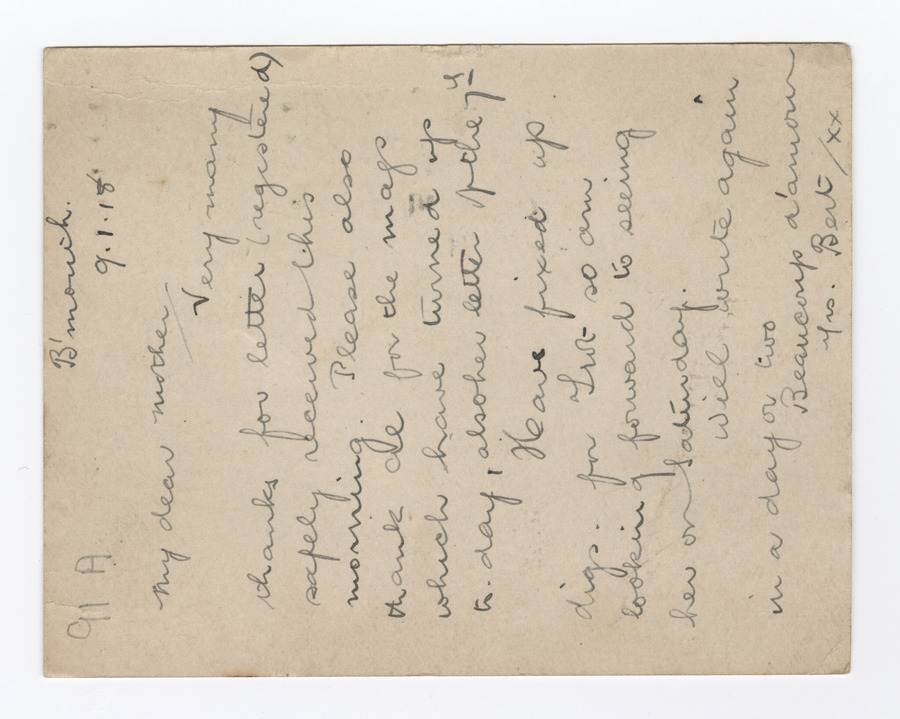 91 A
B'mouth.
9.1.18.
My dear mother
Very many
thanks for letter (registered)
safely received this
morning. Please also
thank De for the mags
which have turned up
to-day, also her letter of the 7th
Have fixed up
digs. for Trot so am
looking forward to seeing
her on Saturday.
Will write again
in a day or two
Beaucoup d'amour
Yrs. Bert / xx